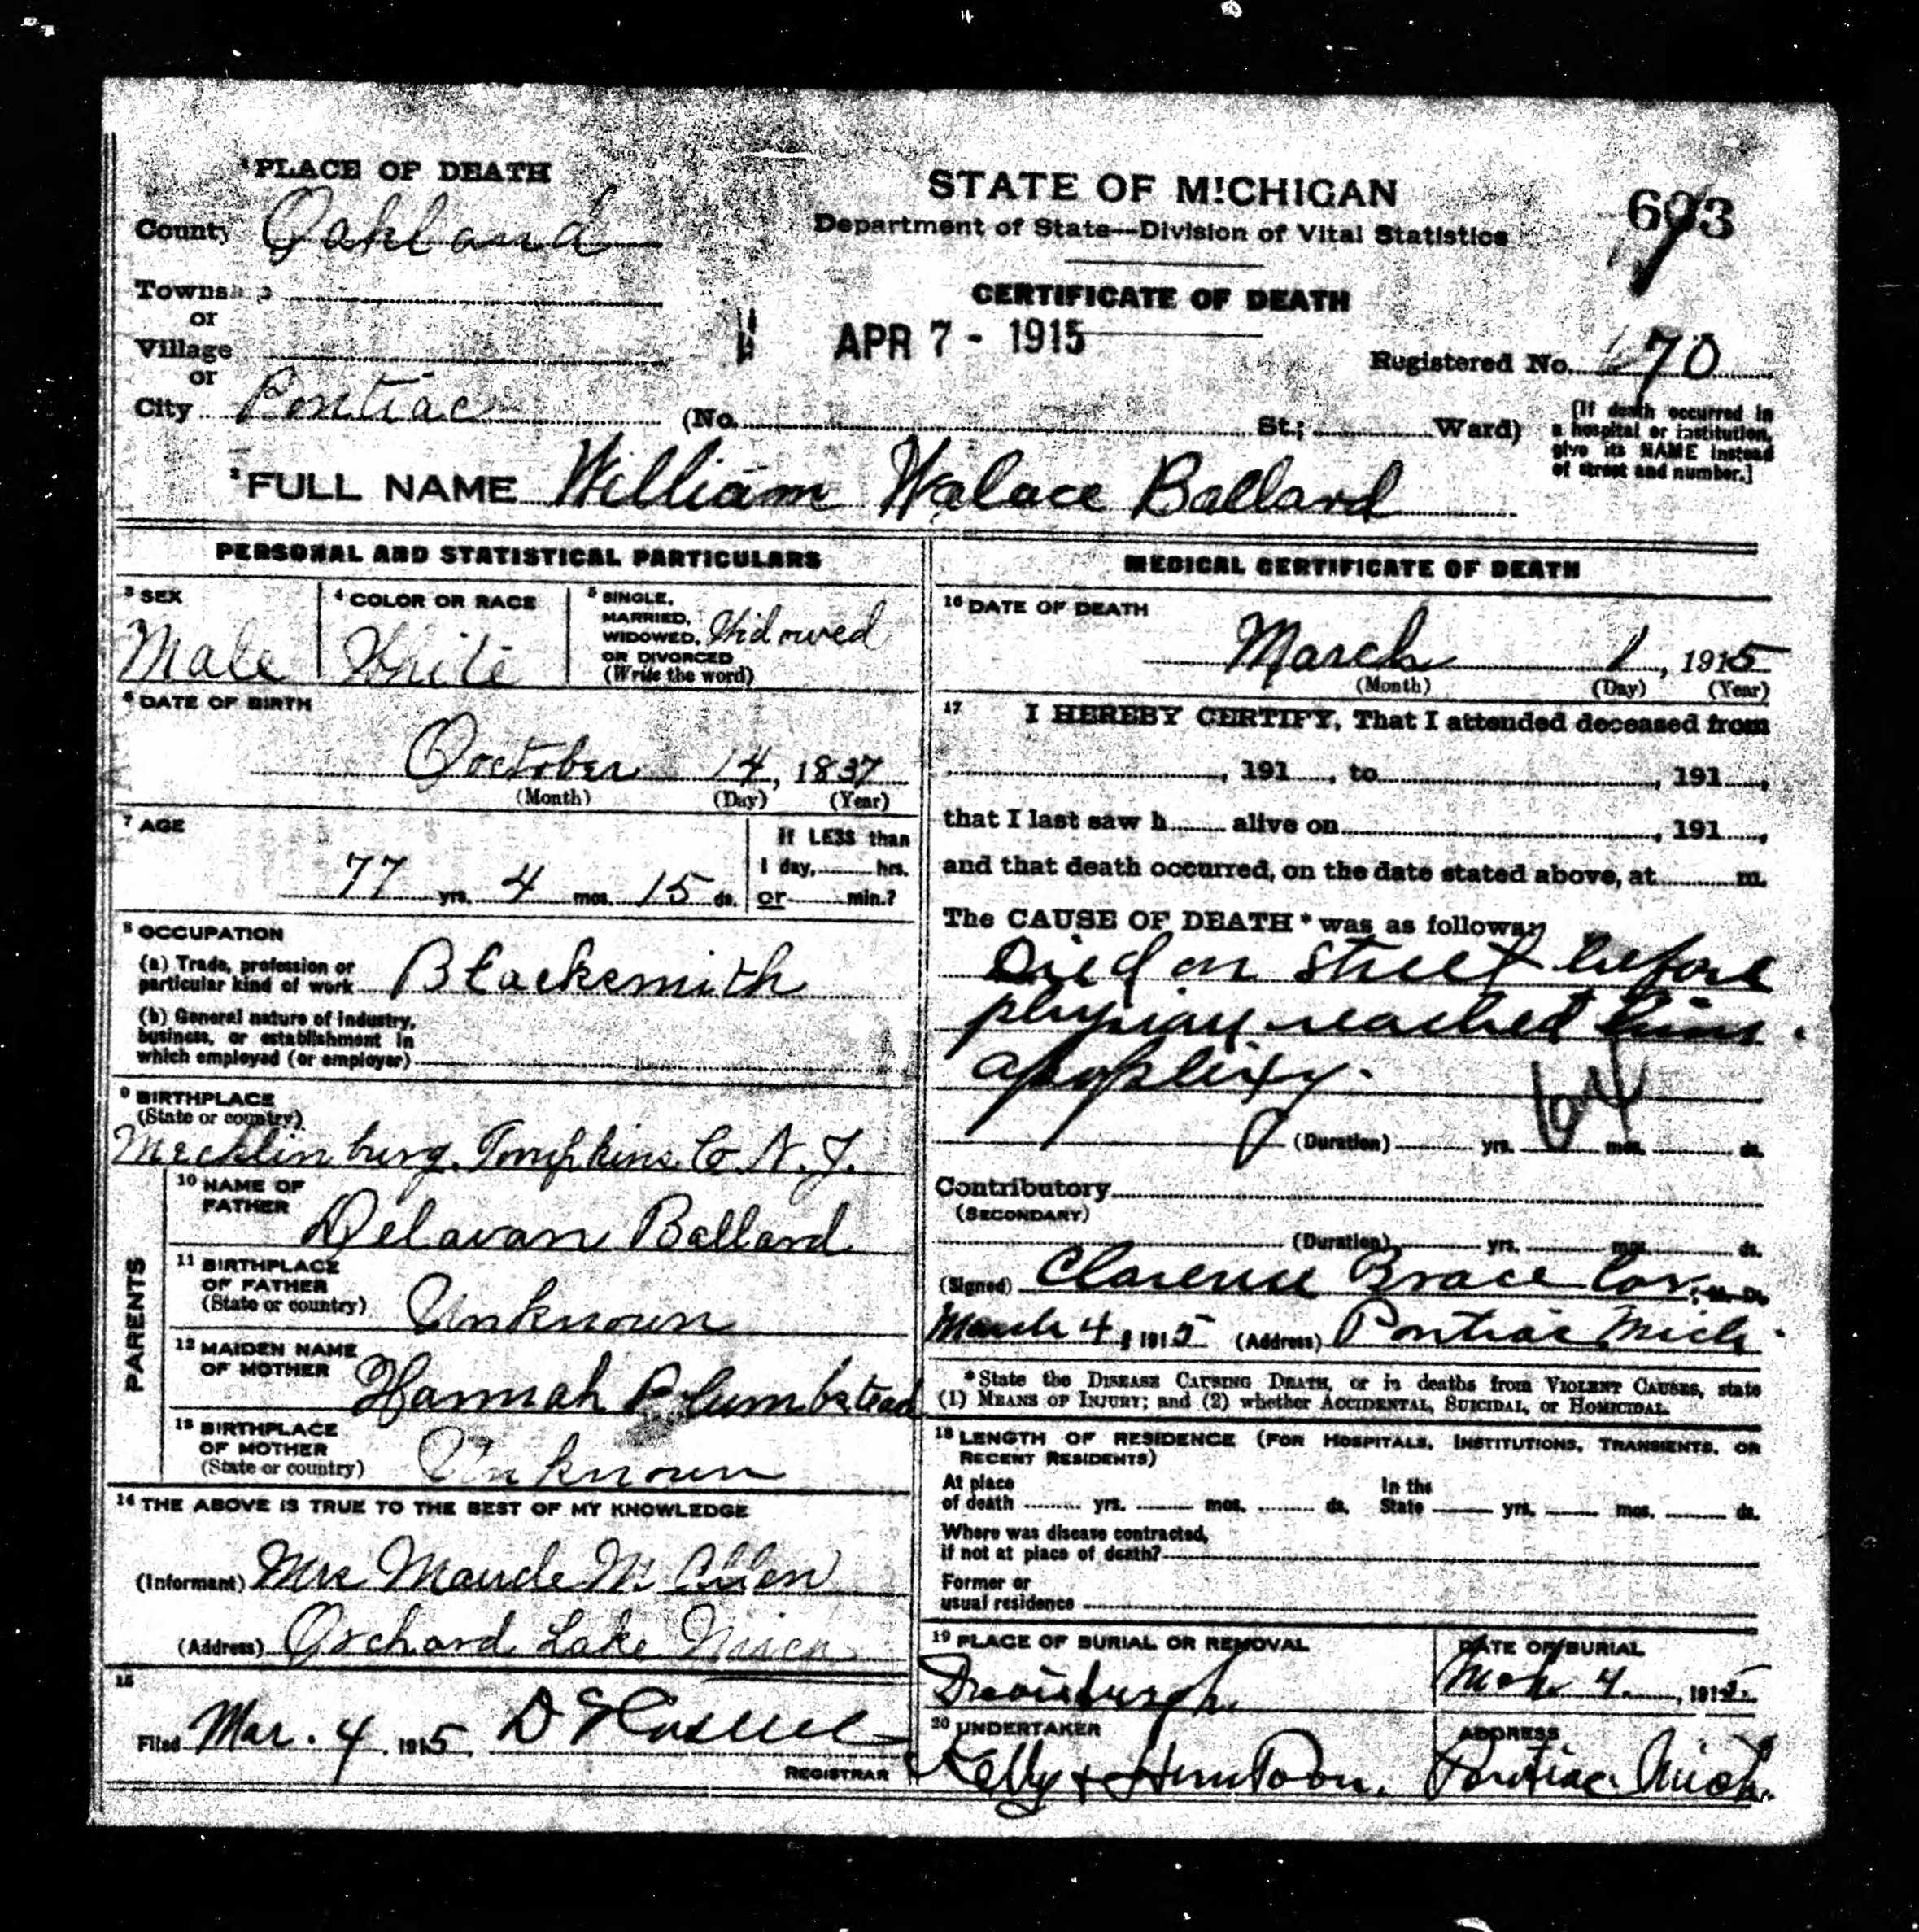 ¹PLACE OF DEATH
County Oakland
Township
or
Village
or
City Pontiac (No. St.; Ward)
STATE OF MICHIGAN
Department of State—Division of Vital Statistics
CERTIFICATE OF DEATH
APR 7 - 1915
693
Registered No. 70
[If death occurred in
a hospital or institution,
give its NAME instead
of street and number.]
²FULL NAME William Walace Ballard
PERSONAL AND STATISTICAL PARTICULARS
³ SEX
Male
⁴ COLOR OR RACE
White
⁵ SINGLE,
MARRIED,
WIDOWED, Widowed
OR DIVORCED
(Write the word)
⁶ DATE OF BIRTH
October 14, 1837
(Month) (Day) (Year)
⁷ AGE
77 yrs. 4 mos. 15 ds.
If LESS than
1 day, hrs.
or min.?
⁸ OCCUPATION
(a) Trade, profession or
particular kind of work Blacksmith
(b) General nature of industry,
business, or establishment in
which employed (or employer)
⁹ BIRTHPLACE
(State or country)
Mecklinburg. Tompkins Co N.Y.
PARENTS
¹⁰ NAME OF
FATHER Delavan Ballard
¹¹ BIRTHPLACE
OF FATHER
(State or country) Unknown
¹² MAIDEN NAME
OF MOTHER Hannah Plumbstead
¹³ BIRTHPLACE
OF MOTHER
(State or country) Unknown
¹⁴ THE ABOVE IS TRUE TO THE BEST OF MY KNOWLEDGE
(Informant) Mrs Maude M.
(Address) Orchard Lake Mich
¹⁵
Filed Mar. 4, 1915
REGISTRAR
MEDICAL CERTIFICATE OF DEATH
¹⁶ DATE OF DEATH
March 1, 1915
(Month) (Day) (Year)
¹⁷ I HEREBY CERTIFY, That I attended deceased from
, 191 , to , 191 ,
that I last saw h alive on , 191 ,
and that death occurred, on the date stated above, at m.
The CAUSE OF DEATH* was as follows:
Died on street before
reached him.
apoplixy.
64
(Duration) yrs. mos. ds.
Contributory
(SECONDARY)
(Duration) yrs. mos. ds.
(Signed) Clarence Brace Cor. , M. D.
March 4, 1915 (Address) Pontiac Mich.
*State the DISEASE CAUSING DEATH, or in deaths from VIOLENT CAUSES, state
(1) MEANS OF INJURY; and (2) whether ACCIDENTAL, SUICIDAL, or HOMICIDAL.
¹⁸ LENGTH OF RESIDENCE (FOR HOSPITALS, INSTITUTIONS, TRANSIENTS, OR
RECENT RESIDENTS)
At place
of death yrs. mos. ds.
In the
State yrs. mos. ds.
Where was disease contracted,
if not at place of death?
Former or
usual residence
¹⁹ PLACE OF BURIAL OR REMOVAL
DATE OF BURIAL
Mch 4, 1915
²⁰ UNDERTAKER
Kelly + Huntoon.
ADDRESS
Pontiac Mich.